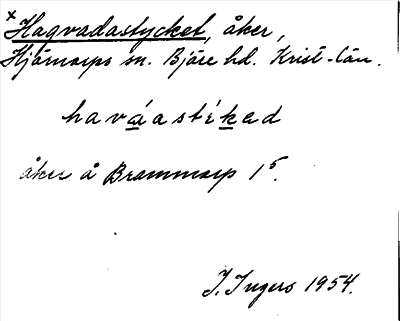 x Hagvadastycket, åker,
Hjärnarps sn. Bjäre hd. Krist-län.
haváastíkad
åker å Brammarp 1⁵.
I. Ingers 1954.